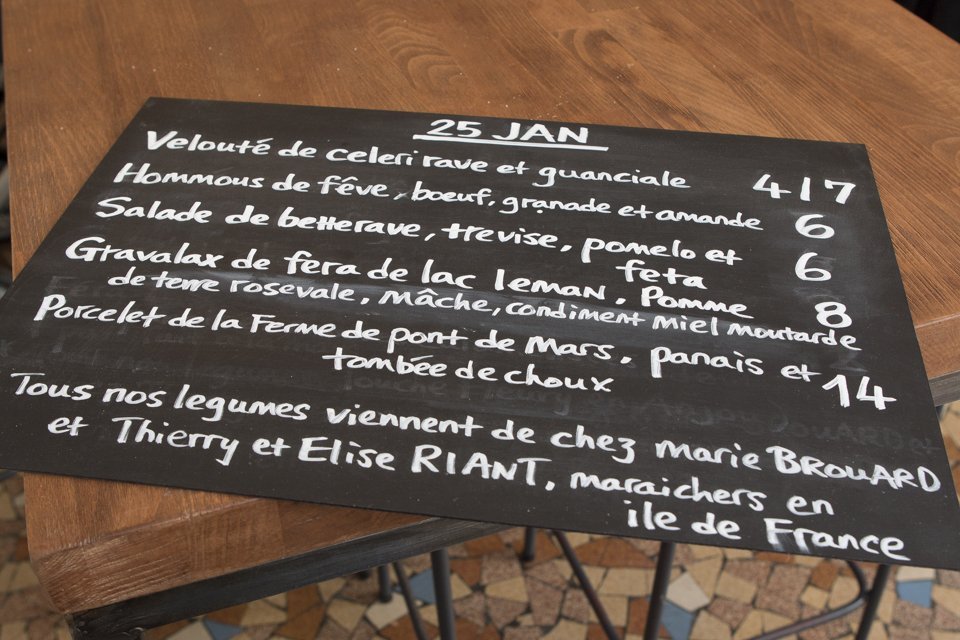 25 JAN
Velouté de celeri rave et guanciale 4/7
Hommous de fêve, boeuf, granade et amande 6
Salade de betterave, trevise, pomelo et 6
feta
Gravalax de fera de lac leman, Pomme 8
de terre rosevale, mâche, condiment miel moutarde
Porcelet de la Ferme de pont de Mars, panais et 14
tombée de choux
Tous nos legumes viennent de chez marie BROUARD
et Thierry et Elise RIANT, maraichers en
ile de France